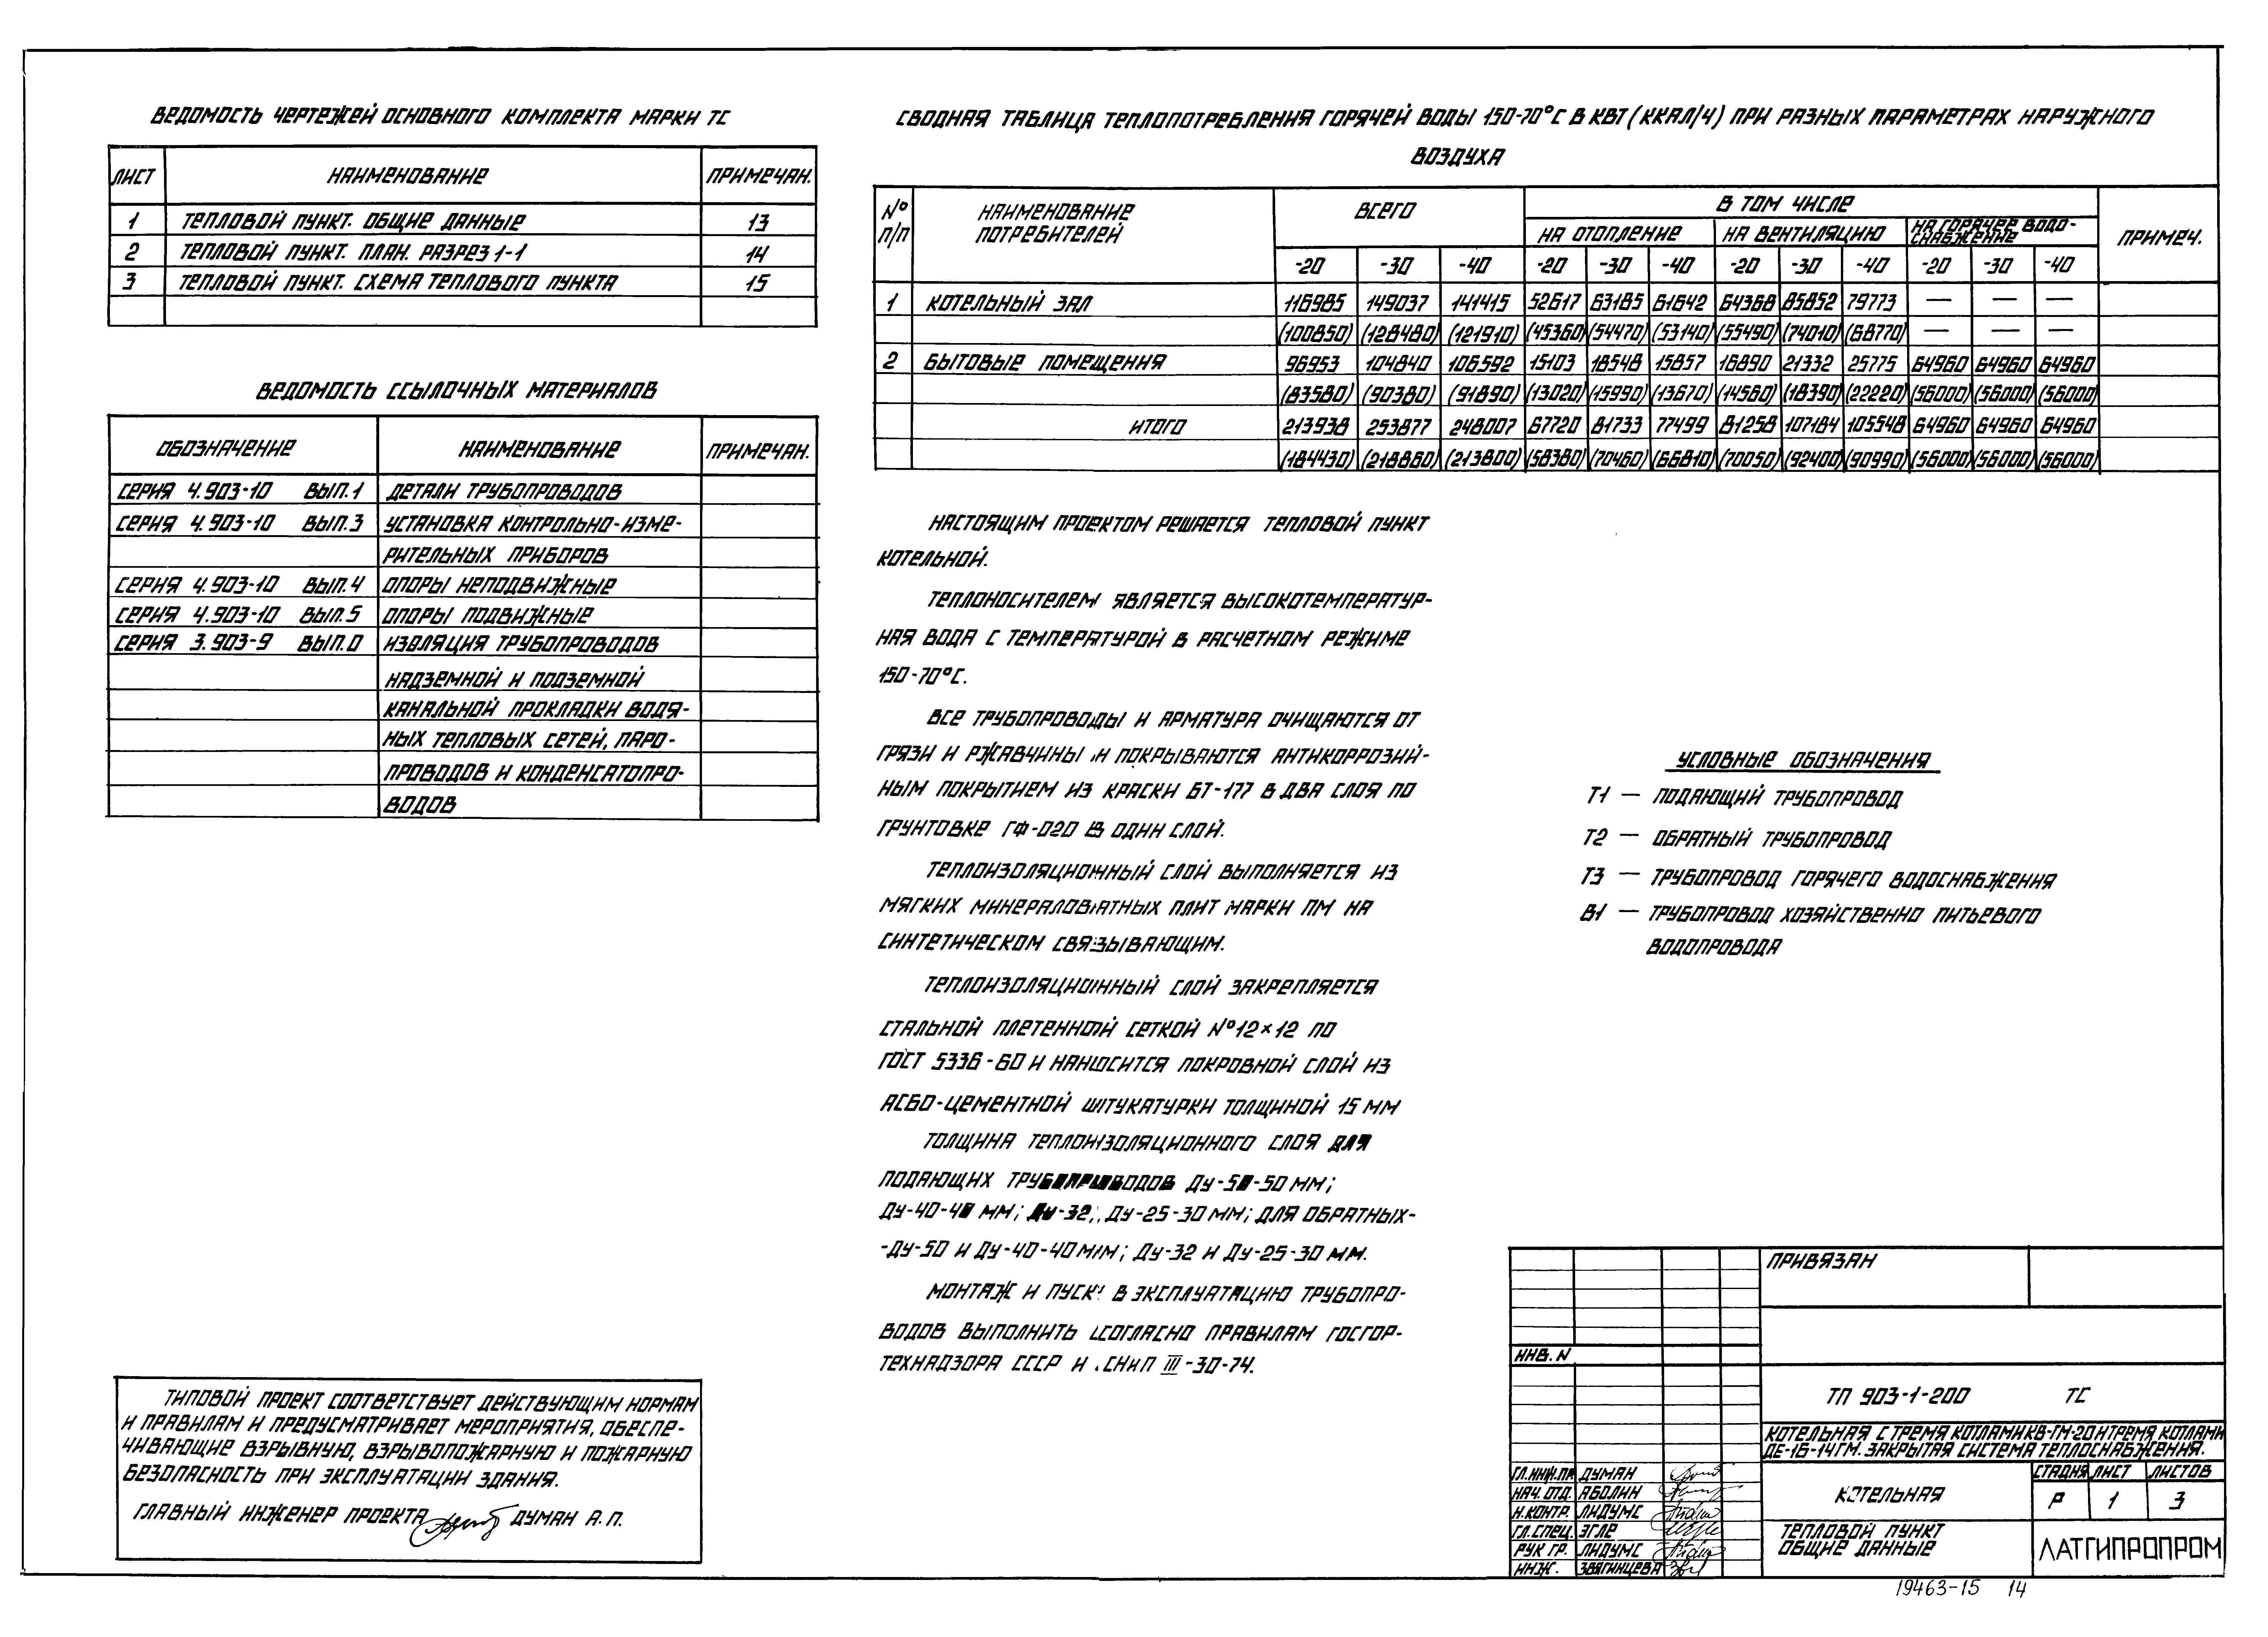 ВЕДОМОСТЬ ЧЕРТЕЖЕЙ ОСНОВНОГО КОМПЛЕКТА МАРКИ ТС
ЛИСТ НАИМЕНОВАНИЕ ПРИМЕЧАН.
1 ТЕПЛОВОЙ ПУНКТ. ОБЩИЕ ДАННЫЕ 13
2 ТЕПЛОВОЙ ПУНКТ. ПЛАН. РАЗРЕЗ 1-1 14
3 ТЕПЛОВОЙ ПУНКТ. СХЕМА ТЕПЛОВОГО ПУНКТА 15
ВЕДОМОСТЬ ССЫЛОЧНЫХ МАТЕРИАЛОВ
ОБОЗНАЧЕНИЕ НАИМЕНОВАНИЕ ПРИМЕЧАН.
СЕРИЯ 4.903-10 ВЫП.1 ДЕТАЛИ ТРУБОПРОВОДОВ
СЕРИЯ 4.903-10 ВЫП.3 УСТАНОВКА КОНТРОЛЬНО-ИЗМЕ-
РИТЕЛЬНЫХ ПРИБОРОВ
СЕРИЯ 4.903-10 ВЫП.4 ОПОРЫ НЕПОДВИЖНЫЕ
СЕРИЯ 4.903-10 ВЫП.5 ОПОРЫ ПОДВИЖНЫЕ
СЕРИЯ 3.903-9 ВЫП.0 ИЗОЛЯЦИЯ ТРУБОПРОВОДОВ
НАДЗЕМНОЙ И ПОДЗЕМНОЙ
КАНАЛЬНОЙ ПРОКЛАДКИ ВОДЯ-
НЫХ ТЕПЛОВЫХ СЕТЕЙ, ПАРО-
ПРОВОДОВ И КОНДЕНСАТОПРО-
ВОДОВ
ТИПОВОЙ ПРОЕКТ СООТВЕТСТВУЕТ ДЕЙСТВУЮЩИМ НОРМАМ
И ПРАВИЛАМ И ПРЕДУСМАТРИВАЕТ МЕРОПРИЯТИЯ, ОБЕСПЕ-
ЧИВАЮЩИЕ ВЗРЫВНУЮ, ВЗРЫВОПОЖАРНУЮ И ПОЖАРНУЮ
БЕЗОПАСНОСТЬ ПРИ ЭКСПЛУАТАЦИИ ЗДАНИЯ.
ГЛАВНЫЙ ИНЖЕНЕР ПРОЕКТА ДУМАН А.П.
СВОДНАЯ ТАБЛИЦА ТЕПЛОПОТРЕБЛЕНИЯ ГОРЯЧЕЙ ВОДЫ 150-70°С В КВТ (ККАЛ/Ч) ПРИ РАЗНЫХ ПАРАМЕТРАХ НАРУЖНОГО
ВОЗДУХА
№ П/П НАИМЕНОВАНИЕ ПОТРЕБИТЕЛЕЙ ВСЕГО В ТОМ ЧИСЛЕ ПРИМЕЧ.
НА ОТОПЛЕНИЕ НА ВЕНТИЛЯЦИЮ НА ГОРЯЧЕЕ ВОДО-СНАБЖЕНИЕ
-20 -30 -40 -20 -30 -40 -20 -30 -40 -20 -30 -40
1 КОТЕЛЬНЫЙ ЗАЛ 116985 149037 141415 52617 63185 61642 64368 85852 79773 — — —
(100850) (128480) (121910) (45360) (54470) (53140) (55490) (74010) (68770) — — —
2 БЫТОВЫЕ ПОМЕЩЕНИЯ 96953 104840 106592 15103 18548 15857 16890 21332 25775 64960 64960 64960
(83580) (90380) (91890) (13020) (15990) (13670) (14560) (18390) (22220) (56000) (56000) (56000)
ИТОГО 213938 253877 248007 67720 81733 77499 81258 107184 105548 64960 64960 64960
(184430) (218860) (213800) (58380) (70460) (66810) (70050) (92400) (90990) (56000) (56000) (56000)
НАСТОЯЩИМ ПРОЕКТОМ РЕШАЕТСЯ ТЕПЛОВОЙ ПУНКТ
КОТЕЛЬНОЙ.
ТЕПЛОНОСИТЕЛЕМ ЯВЛЯЕТСЯ ВЫСОКОТЕМПЕРАТУР-
НАЯ ВОДА С ТЕМПЕРАТУРОЙ В РАСЧЕТНОМ РЕЖИМЕ
150-70°С.
ВСЕ ТРУБОПРОВОДЫ И АРМАТУРА ОЧИЩАЮТСЯ ОТ
ГРЯЗИ И РЖАВЧИНЫ И ПОКРЫВАЮТСЯ АНТИКОРРОЗИЙ-
НЫМ ПОКРЫТИЕМ ИЗ КРАСКИ БТ-177 В ДВА СЛОЯ ПО
ГРУНТОВКЕ ГФ-020 В ОДИН СЛОЙ.
ТЕПЛОИЗОЛЯЦИОННЫЙ СЛОЙ ВЫПОЛНЯЕТСЯ ИЗ
МЯГКИХ МИНЕРАЛОВАТНЫХ ПЛИТ МАРКИ ПМ НА
СИНТЕТИЧЕСКОМ СВЯЗЫВАЮЩИМ.
ТЕПЛОИЗОЛЯЦИОННЫЙ СЛОЙ ЗАКРЕПЛЯЕТСЯ
СТАЛЬНОЙ ПЛЕТЕННОЙ СЕТКОЙ №12×12 ПО
ГОСТ 5336-60 И НАНОСИТСЯ ПОКРОВНОЙ СЛОЙ ИЗ
АСБО-ЦЕМЕНТНОЙ ШТУКАТУРКИ ТОЛЩИНОЙ 15 ММ
ТОЛЩИНА ТЕПЛОИЗОЛЯЦИОННОГО СЛОЯ ДЛЯ
ПОДАЮЩИХ ТРУБОПРОВОДОВ Ду-50-50 ММ;
Ду-40-40 ММ; Ду-32, Ду-25-30 ММ; ДЛЯ ОБРАТНЫХ-
-Ду-50 И Ду-40-40 ММ; Ду-32 И Ду-25-30 ММ.
МОНТАЖ И ПУСК В ЭКСПЛУАТАЦИЮ ТРУБОПРО-
ВОДОВ ВЫПОЛНИТЬ СОГЛАСНО ПРАВИЛАМ ГОСГОР-
ТЕХНАДЗОРА СССР И СНиП III-30-74.
УСЛОВНЫЕ ОБОЗНАЧЕНИЯ
Т1 — ПОДАЮЩИЙ ТРУБОПРОВОД
Т2 — ОБРАТНЫЙ ТРУБОПРОВОД
Т3 — ТРУБОПРОВОД ГОРЯЧЕГО ВОДОСНАБЖЕНИЯ
В1 — ТРУБОПРОВОД ХОЗЯЙСТВЕННО ПИТЬЕВОГО
ВОДОПРОВОДА
ПРИВЯЗАН
ИНВ. N
ТП 903-1-200 ТС
КОТЕЛЬНАЯ С ТРЕМЯ КОТЛАМИ КВ-ГМ-20 И ТРЕМЯ КОТЛАМИ
ДЕ-16-14ГМ. ЗАКРЫТАЯ СИСТЕМА ТЕПЛОСНАБЖЕНИЯ.
ГЛ.ИНЖ.ПР. ДУМАН
НАЧ. ОТД. АБОЛИН
Н.КОНТР. ЛИДУМС
ГЛ.СПЕЦ. ЭГЛЕ
РУК ГР. ЛИДУМС
ИНЖ. ЗВЯГИНЦЕВА
КОТЕЛЬНАЯ
СТАДИЯ ЛИСТ ЛИСТОВ
Р 1 3
ТЕПЛОВОЙ ПУНКТ
ОБЩИЕ ДАННЫЕ
ЛАТГИПРОПРОМ
19463-15 14